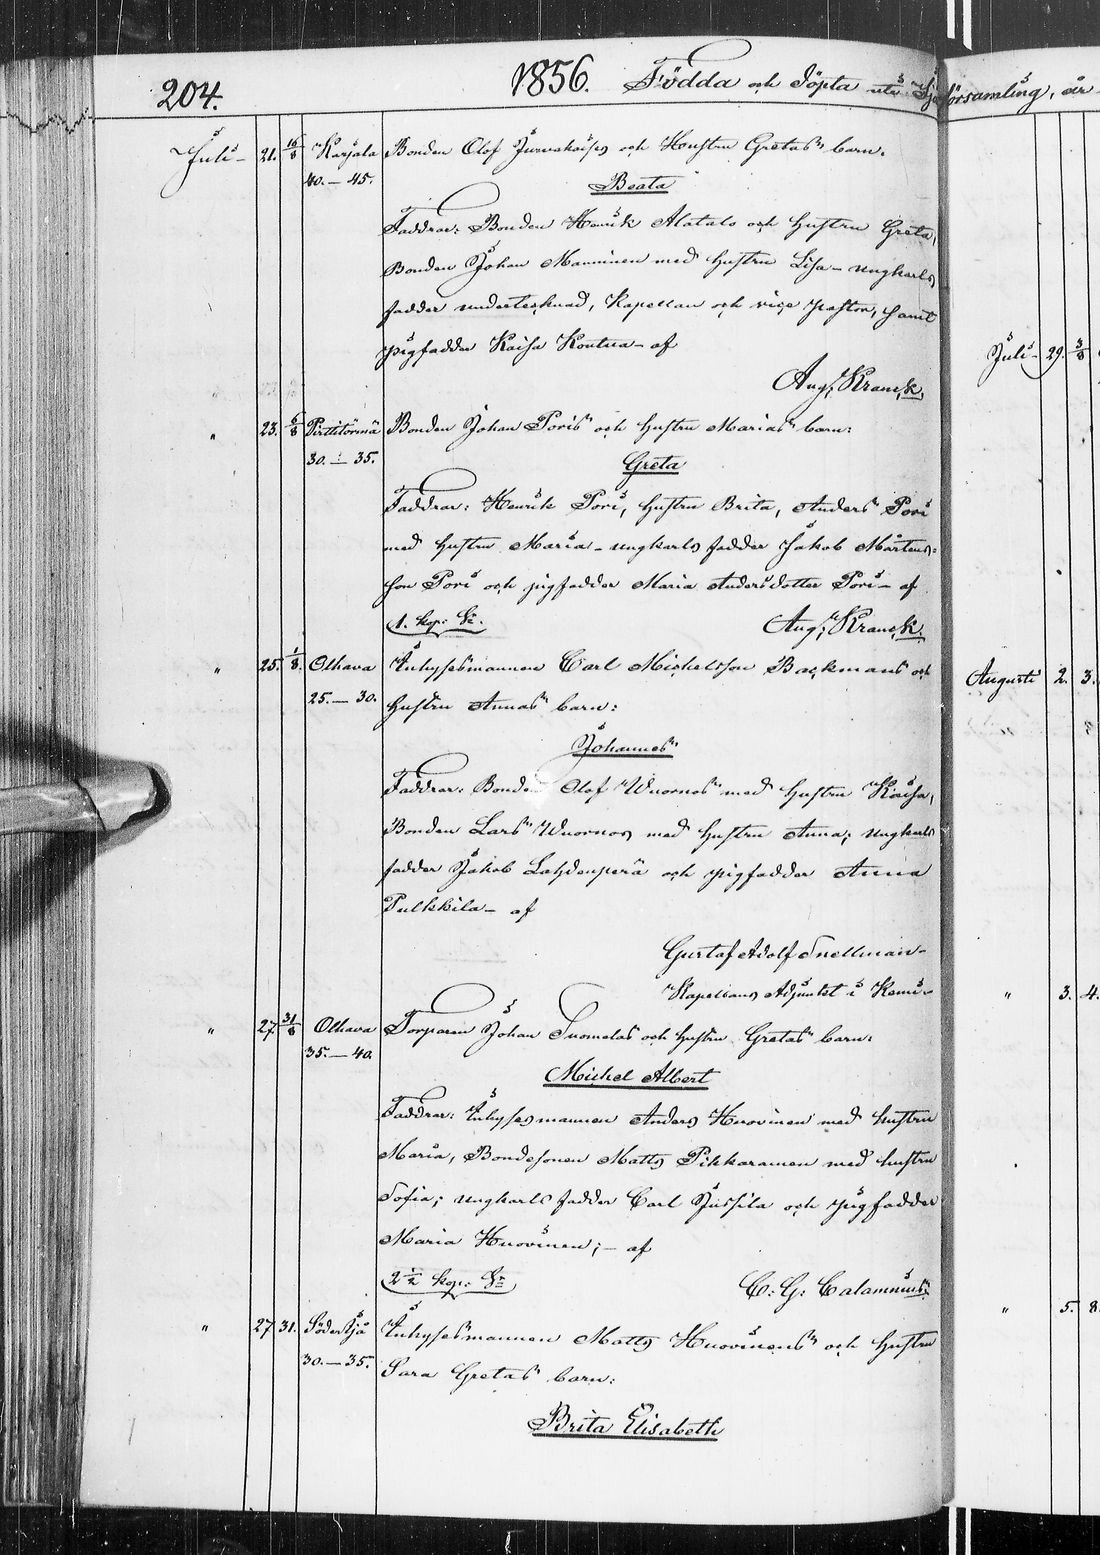 204.
1856. Födda och döpta uti Ijo församling, år
Juli 21. 16/8 Karjala Bonden Olof Jurvakaises och Hustru Gretas barn:
40.–45.
Beata
Faddrar: Bonden Henrik Alatalo och hustru Greta,
Bonden Johan Manninen med hustru Lisa – ungkarls
fadder undertecknad, Kapellan och vice pastor, samt
pigfadder Kaisa Kontua – af
Aug. Kranck.
" 23. 6/8 Pirttitörmä Bonden Johan Poris och hustru Marias barn:
30.–35.
Greta
Faddrar: Henrik Pori, hustru Brita, Anders Pori
med hustru Maria – ungkarls fadder Jakob Mårtens-
son Pori och pigfadder Maria Andersdotter Pori – af
1. kop: Sr.
Aug. Kranck.
" 25. 1/8. Olhava Inhysesmannen Carl Michelsson Backmans och
25.–30. hustru Annas barn:
Johannes
Faddrar: Bonden Olof Wuornos med hustru Kaisa,
Bonden Lars Wuornos med hustru Anna; ungkarls
fadder Jakob Lahdenperä och pigfadder Anna
Pulkkila – af
Gustaf Adolf Snellman
Kapellans Adjunkt i Kemi
" 27. 31/8 Olhava Torparen Johan Tuomelas och hustru Gretas barn:
35.–40.
Michel Albert
Faddrar: Inhysesmannen Anders Huovinen med hustru
Maria, Bondesonen Matts Pikkarainen med hustru
Sofia; ungkarls fadder Carl Jussila och pigfadder
Maria Huovinen; – af
2 1/2 kop: Sr
C: G: Calamnius.
" 27. 31. Söder Ijå Inhysesmannen Matts Huovinens och hustru
30.–35. Sara Gretas barn:
Brita Elisabeth
Juli – 29. 3/8
Augusti 2. 3.
" 3. 4.
" 5. 8.